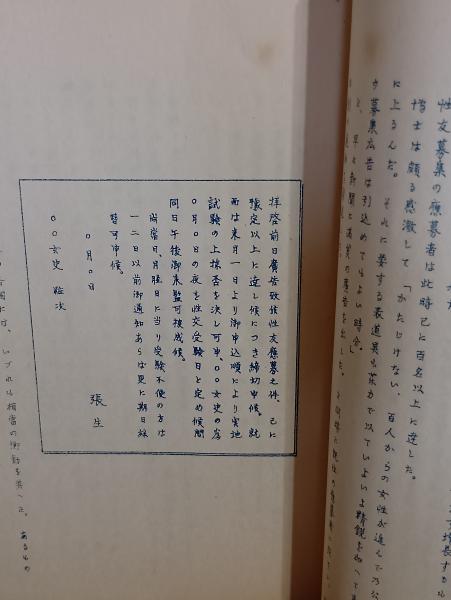 性友募集の應募者は此時已に百名以上に達した。
博士は頗る感激して「かたじけない、百人からの女性が進んで乃公
に上るんだ。それに要する表道具も
う募集広告は引込めてもよい時分」
と、早々新聞に満員の廣告を出した。
拝啓前日廣告致候性友應募之件、已に
豫定以上に達し候につき締切申候。就
而は来月一日より御申込順により実地
試験の上採否を決し可申、〇〇女史の分
〇月〇日の夜を性交受験日と定め候間
同日午後御来監可被成候。
尚當日、月経日に当り受験不便の方は
一二日以前御通知あらば更に期日繰
替可申候。
〇月〇日
張生
〇〇女史 粧次
いづれも相當の衝動を與へた。あるもの